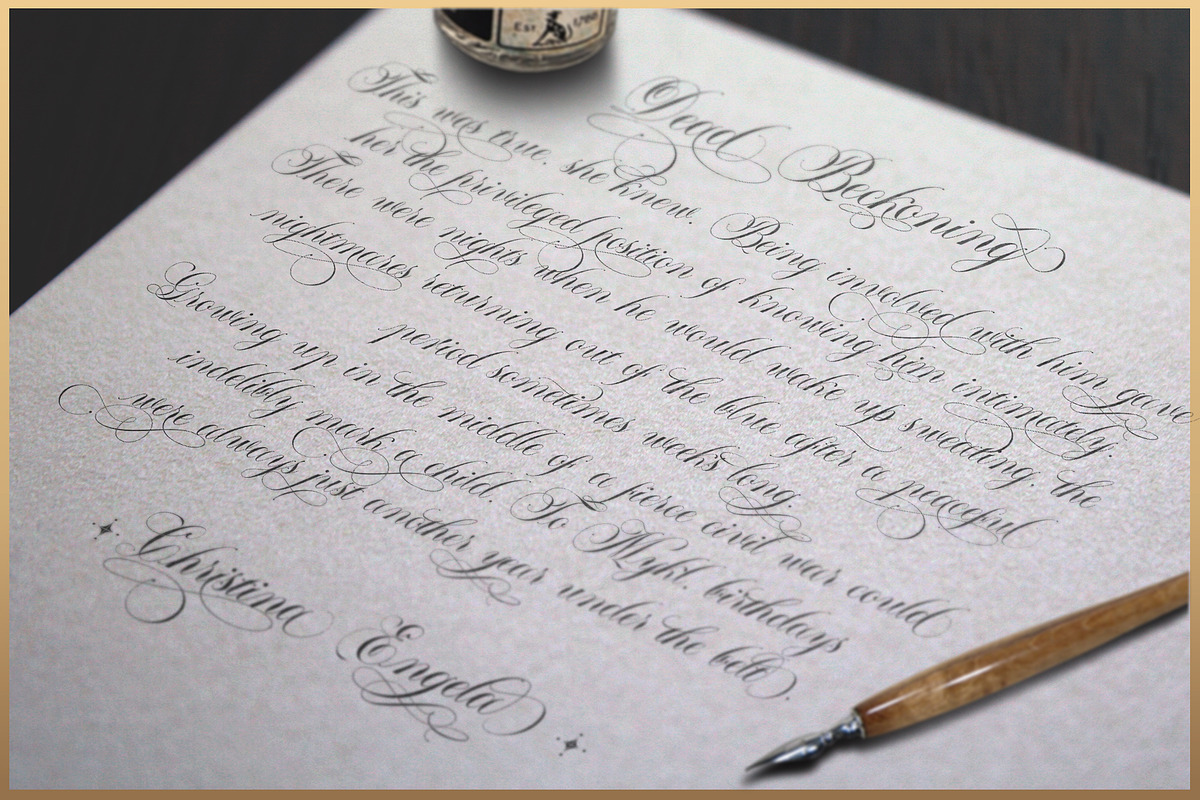 EST 1700
Dead Beckoning
This was true, she knew. Being involved with him gave
her the privileged position of knowing him intimately.
There were nights when he would wake up sweating, the
nightmares returning out of the blue after a peaceful
period sometimes weeks long.
Growing up in the middle of a fierce civil war could
indelibly mark a child. To Mykl, birthdays
were always just another year under the belt.
Christina Engela